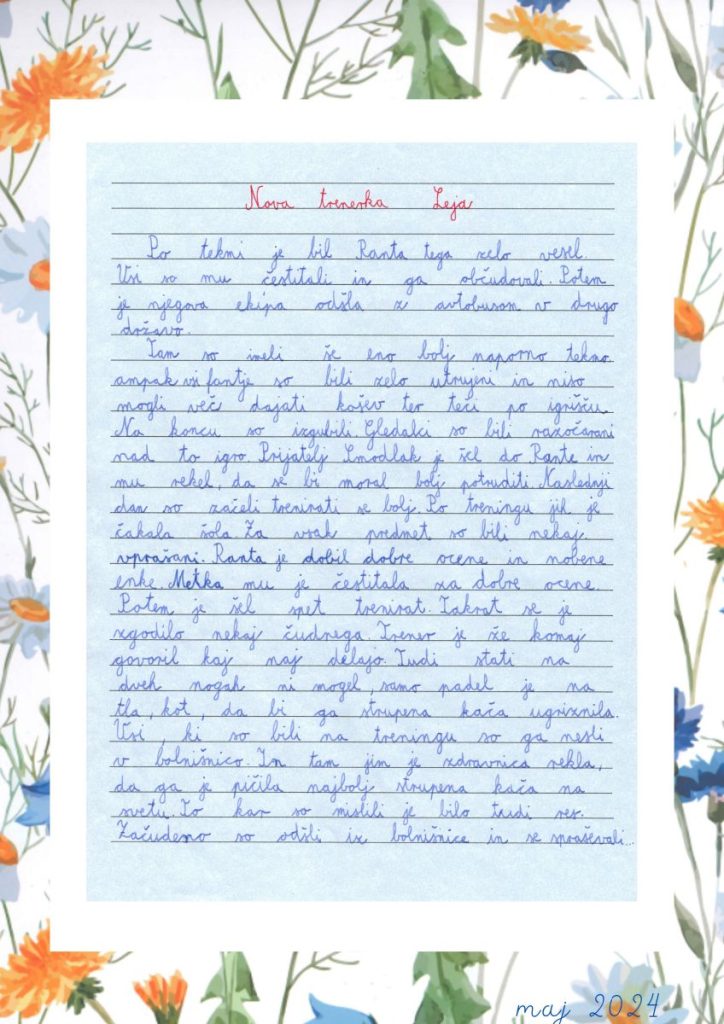 Nova trenerka Leja
Po tekmi je bil Ranta tega zelo vesel.
Vsi so mu čestitali in ga občudovali. Potem
je njegova ekipa odšla z avtobusom v drugo
državo.
Tam so imeli še eno bolj naporno tekmo
ampak vsi fantje so bili zelo utrujeni in niso
mogli več dajati košev ter teči po igrišču.
Na koncu so izgubili. Gledalci so bili razočarani
nad to igro. Prijatelj Smodlak je šel do Rante in
mu rekel, da se bi moral bolj potruditi. Naslednji
dan so začeli trenirati še bolj. Po treningu jih je
čakala šola. Za vsak predmet so bili nekaj
vprašani. Ranta je dobil dobre ocene in nobene
enke. Metka mu je čestitala za dobre ocene.
Potem je šel spet trenirat. Takrat se je
zgodilo nekaj čudnega. Trener je že komaj
govoril kaj naj delajo. Tudi stati na
dveh nogah ni mogel, samo padel je na
tla, kot, da bi ga strupena kača ugriznila.
Vsi, ki so bili na treningu so ga nesli
v bolnišnico. In tam jim je zdravnica rekla,
da ga je pičila najbolj strupena kača na
svetu. To kar so mislili je bilo tudi res.
Začudeno so odšli iz bolnišnice in se spraševali...
maj 2024